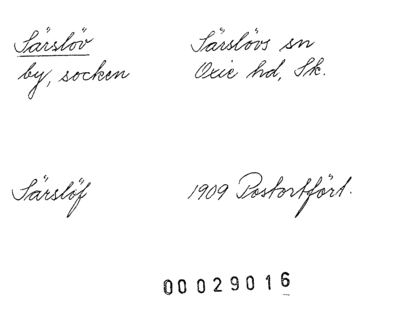 Särslöv Särslövs sn
by, socken Oxie hd, Sk.
Särslöf 1909 Postortfört.
00029016